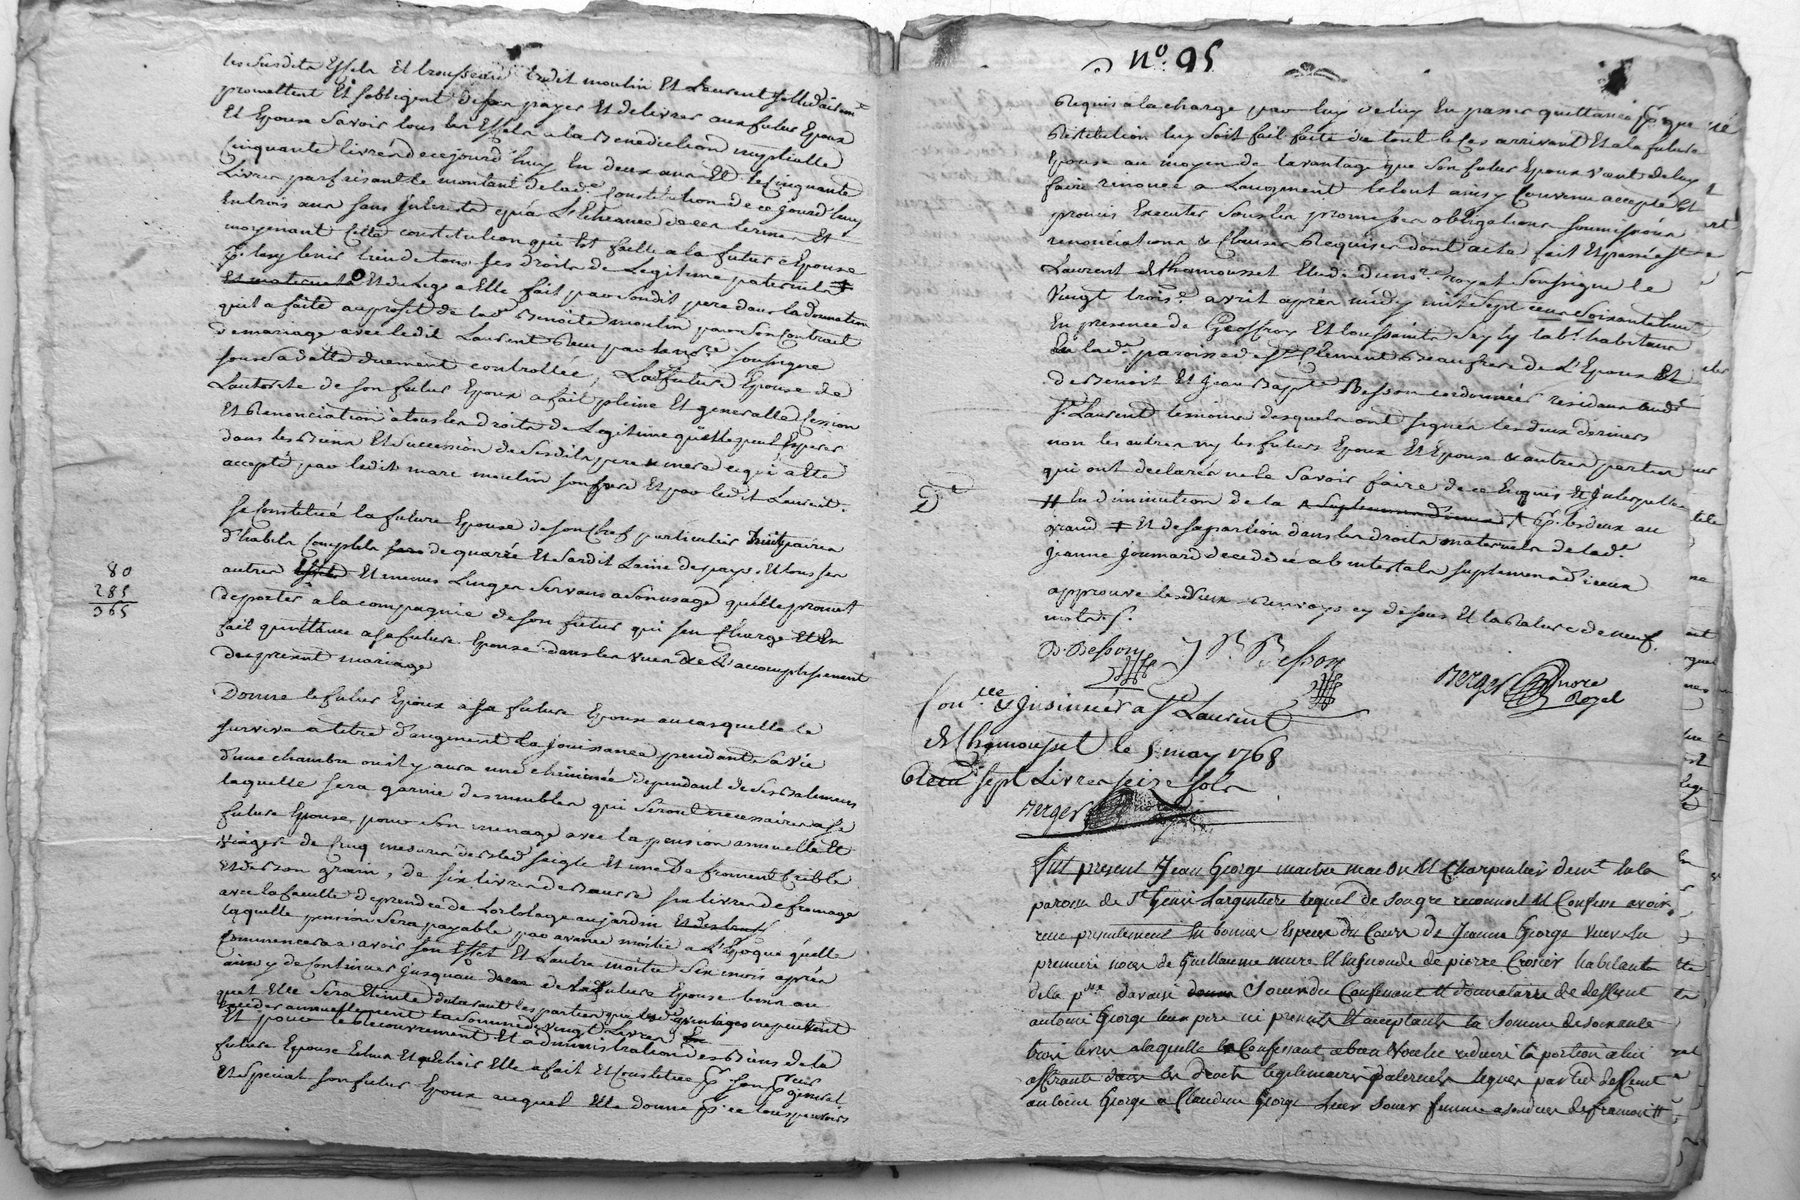 les susdits Effets Et trousseau ledit moulin Et Laurent sollidairem.t
promettent Et sobligent de payer Et delivrer aux futurs Epoux
Et Epouse Savoir tous les Effets a la Benediction nuptialle
Cinquante livres de cejourd'huy En deux ans Et les cinquante
Livres parfaisant le montant de lad.e Constitution de ce jourd'huy
En trois ans sans Interets qu'a L'Echeance de ces termes Et
moyenant Cette constitution qui Est faitte a la future Epouse
p.r luy tenir lieu de tous ses droits de Legitime paternels ‡
Et maternels Et du Legs a Elle fait par Sondit pere dans la donnation
qu'il a faite au profit de lad.e Benoite moulin par Son Contrat
de mariage avec ledit Laurent Recu par le no.re Soussigne
sous sa datte duement controllée, Lad.e future Epouse de
Lautorité de son futur Epoux a fait pleine Et generalle Cession
Et Renonciation a tous les droits de Legitime qu'elle peut Esperer
dans les Biens Et succession de Sesdits pere & mere ce qui a Eté
accepté par ledit marc moulin son frere Et par ledit Laurent.
Se Constitue la future Epouse de son Chef particulier huit paires
d'habits Complets de quarré Et Sardit Laine de pays, Et tous ses
autres Effets Et menus Linges Servans a Son usage qu'elle promet
de porter a la compagnie de son futur qui s'en Charge Et En
fait quittance a sa future Epouse dans les vues de L'accomplissement
du present mariage
80
285
365
Donne le futur Epoux a sa future Epouse au cas quelle le
Survive a titre d'augment la jouissance pendant sa vie
d'une chambre ou il y aura une cheminée dependant de ses Batimens
laquelle sera garnie des meubles qui seront necessaires a sa
future Epouse pour Son menage avec la pension annuelle Et
viagere de Cinq mesures Bled Seigle Et une de froment Crible
Et de bon grain, de six livres de Beurre six livres de fromage
avec la faculté de prendre de Lortolage au jardin
laquelle pension Sera payable par avance moitié a L'Epoque qu'elle
Commencera a avoir son Effet Et L'autre moitié Six mois après
ainsy de Continuer jusqu'au deces de lad. future Epouse
quel Elle Sera Eteinte declarant les parties que les avantages ne peuvent
exceder annuellement la somme de vingt Livres
Et pour le Recouvrement Et administration des Biens de la
future Epouse Echus Et a Echoir Elle a fait Et Constitue p.r son p.reur general
Et Special son futur Epoux auquel Elle donne p.r ce tous pouvoirs
n.o 95
Requis a la charge par luy de luy En passer quittance p.r que
Restitution luy Soit fait faite de tout le Cas arrivant Et a la future
Epouse au moyen de lavantage que Son futur Epoux vient de luy
faire renoncé a Laugment le tout ainsy Convenu accepté Et
promis Executer Sous les promesses obligations Soumissions
renonciations & Clauses Requises dont acte fait Et passé a S.t
Laurent de Chamousset Etude du no.re Royal Soussigné le
Vingt trois.e avril après midy mil sept cens Soixante huit
En presence de Geoffroy Et Toussaints lab.r habitans
lad.e paroisse de S.t Clement Beaufrere de L'Epoux Et
de Benoit Et Jean Bap.te Besson cordonniers residans aud.t
S.t Laurent temoins desquels ont signés les deux derniers
non les autres ny les futurs Epoux Et Epouse & autres parties
qui ont declarés ne le Savoir faire de ce Enquis Et Interpellés
‡ En diminution de la
grand ‡ Et de sa portion dans les droits maternels de lad.e
jeanne joumard decedée ab intestats suplement d'iceux
approuve les deux Renvoys cy dessus Et la Rature de neuf
mots. /.
B. Besson J B Besson Berger nore Royal
Con.lé & Insinué a S.t Laurent
de Chamousset le 5. may 1768
Recu sept Livres seize sols
Berger
fut present Jean George maitre macon Et Charpentier dem.t en la
paroisse de S.t Genis Largentiere lequel de Son gre reconnoit Et Confesse avoir
receu presentement En bonnes Especes du Cours de Jeanne George veuve En
premiere noces de Guillaume mure Et En seconde de pierre Crosier habitante
de la p.sse davaise Soeur du Confessant Et donnataire de deffunt
antoine George leur pere ici presente Et acceptante la Somme de soixante
trois livres a laquelle le Confessant a bien voulu reduire sa portion a lui
afferante dans les droits legitimaires paternels legués par led. deffunt
antoine George a Claudine George leur soeur femme